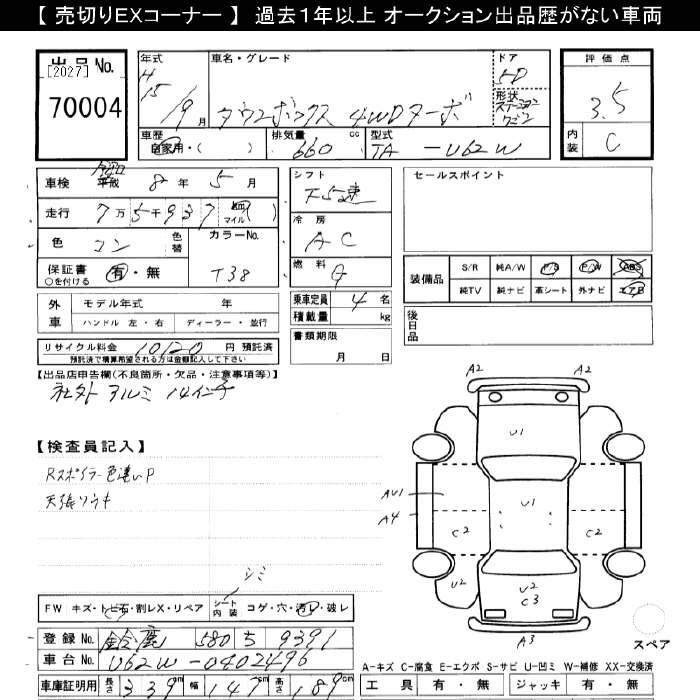 【 売切りEXコーナー 】 過去１年以上 オークション出品歴がない車両
出品 No.
[2027]
70004
年式
H 15 / 9 月
車名・グレード
タウンボックス 4WDターボ
ドア
5D
形状
ステーションワゴン
評価点
3.5
内装
C
車歴
自家用・( )
排気量 cc
660
型式
TA - U62W
車検 平成 8 年 5 月
走行 7 万 5 千 937 km マイル ( )
色 コン
色替
カラーNo.
T38
保証書 有・無
○を付ける
シフト
F5速
冷房
AC
燃料
G
乗車定員 4 名
積載量 kg
書類期限
月 日
セールスポイント
装備品
S/R 純A/W P/S P/W ABS
純TV 純ナビ 革シート 外ナビ エアB
後日品
外車
モデル年式 年
ハンドル 左・右 ディーラー・並行
リサイクル料金 10120 円 預託済
預託済で精算希望される方は金額記入して下さい
【出品店申告欄(不良箇所・欠品・注意事項等)】
社外 アルミ 14インチ
【検査員記入】
Rスポイラー色違いP
天張りウキ
シミ
FW キズ・トビ石・割レX・リペア
シート内装 コゲ・穴・汚レ・破レ
登録 No. 鈴鹿 580 ち 9391
車台 No. U62W-0402496
車庫証明用 長さ 339 cm 幅 147 cm 高さ 189 cm
A2 A2
U1
AU1
A4
U1
C2 C2
U2
U2
C3
A3
スペア
A-キズ C-腐食 E-エクボ S-サビ U-凹ミ W-補修 XX-交換済
工具 有・無 ジャッキ 有・無